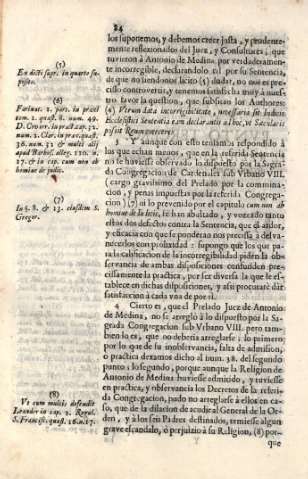 24
los suponemos, y debemos creer justa, y prudente-
mente reflexionados del Juez, y Consultores, que
tuvieron à Antonio de Medina por verdaderamen-
te incorregible, declarandolo tal por su Sentencia,
de que no siendonos licito (5) dudar, no nos es preci-
sso controvertir, y tenemos asistida à nuestro
favor la question, que suscitan los Authores:
(6) Verum data incorregibilitate, necessaria sit iudicis
Ecclesiastici Sententia eam declarantis ad hoc, ut Sæculari
possit Reum exercere
3 Y aunque con esto teniamos respondido à
los que echan menos, que en la referida Sentencia
no se huviesse observado lo dispuesto por la Sagra-
da Congregacion de Cardenales sub Urbano VIII.
(cargo gravissimo del Prelado por la commina-
cion, y penas impuestas por la referida Congrega-
cion) (7) ni lo prevenido por el capitulo cum non ab
homine de Iudiciis, se han abultado, y voceado tanto
estos dos defectos contra la Sentencia, que el ardor,
y eficacia con que se ponderan nos precisa à deva-
necerlos con prolixidad: supongo que los que pa-
ra la calificacion de la incorregibilidad piden la ob-
servancia de ambas disposiciones conducidas pre-
cissamente la practica, por ser diversa la que se es-
tablece en dichas disposiciones, y assi procurarè dàr
satisfaccion à cada una de por sì.
4 Cierto es, que el Prelado Juez de Antonio
de Medina, no se arreglò à lo dispuesto por la Sa-
grada Congregacion sub Urbano VIII. pero tam-
bien lo es, que no deberia arreglarse: lo primero
por lo que de su inobservancia, falta de admission,
o practica dexamos dicho al num. 38. del segundo
punto; lo segundo, porque aunque la Religion de
Antonio de Medina huviesse admitido, y tuviesse
en practica, y observancia los Decretos de la referi-
da Congregacion, pudo no arreglarse à ellos en ca-
so, que de la dilacion de acudir al General de la Or-
den, y à los seis Padres destinados, temiesse algun
grave escandalo, ò perjuizio à su Religion, (8) por-
que
(5)
En dicti supr. in quarto su-
(6)
Farinac. 1. par. in praxi
tom. 1. quæst. 8. num. 49.
num. 2. Clar. in prax. quæst.
36. num. 32 & multi alij
apud Barbos. alleg. 110. n.
17. & in cap. cum non ab
homine de judic.
(7)
In §. 8. & 23. eiusdem S.
Greger.
(8)
Ut cum multis defendit
Leander in cap. 2. Regul.
S. Francisc. quæst. 16. n. 17.